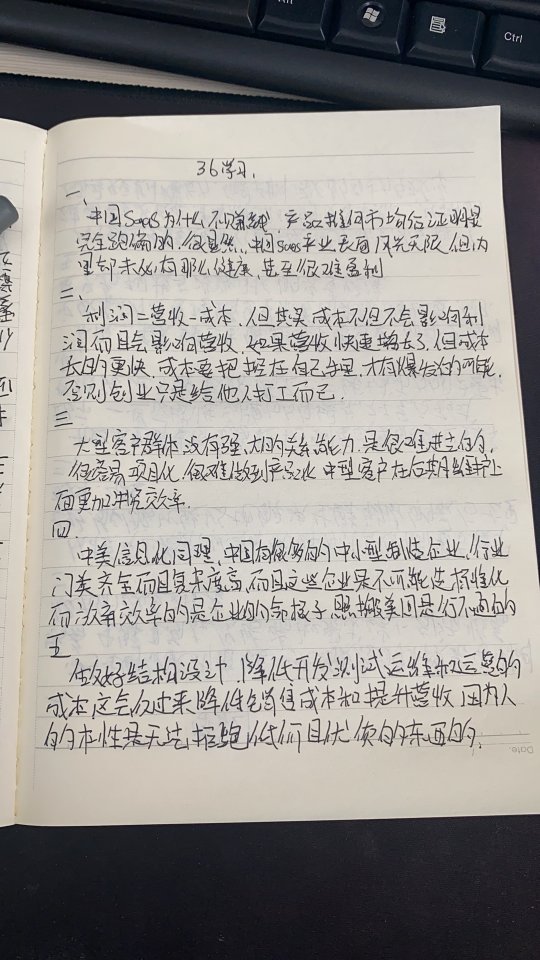 Alt
Ctrl
36学习.
一、
中国SaaS为什么不赚钱, 产品推向市场佐证明是
完全跑偏的, 很显然, 中国SaaS产业表面风光无限 但内
里却未必有那么健康, 甚至很难盈利
二、
利润=营收-成本, 但其实成本不但不会影响利
润而且会影响营收, 如果营收快速增长了, 但成本
长的更快, 成本要把握在自己手里, 才有爆发的可能,
否则创业只是给他人打工而已.
三
大型客户群体没有强大的关系能力, 是很难进去的,
很容易项目化, 很难做到产品化 中型客户在后期维护上
面更加讲究效率.
四.
中美信息化同理, 中国有很多的中小型制造企业, 行业
门类齐全而且复杂度高, 而且这些企业是不可能选择标准化
而放弃效率的是企业的命根子 照搬美国是行不通的
五
做好结构设计, 降低开发测试运维和运营的
成本这会反过来降低包销售成本和提升营收 因为人
的本性是无法拒绝低价且优质的东西的.
Date.